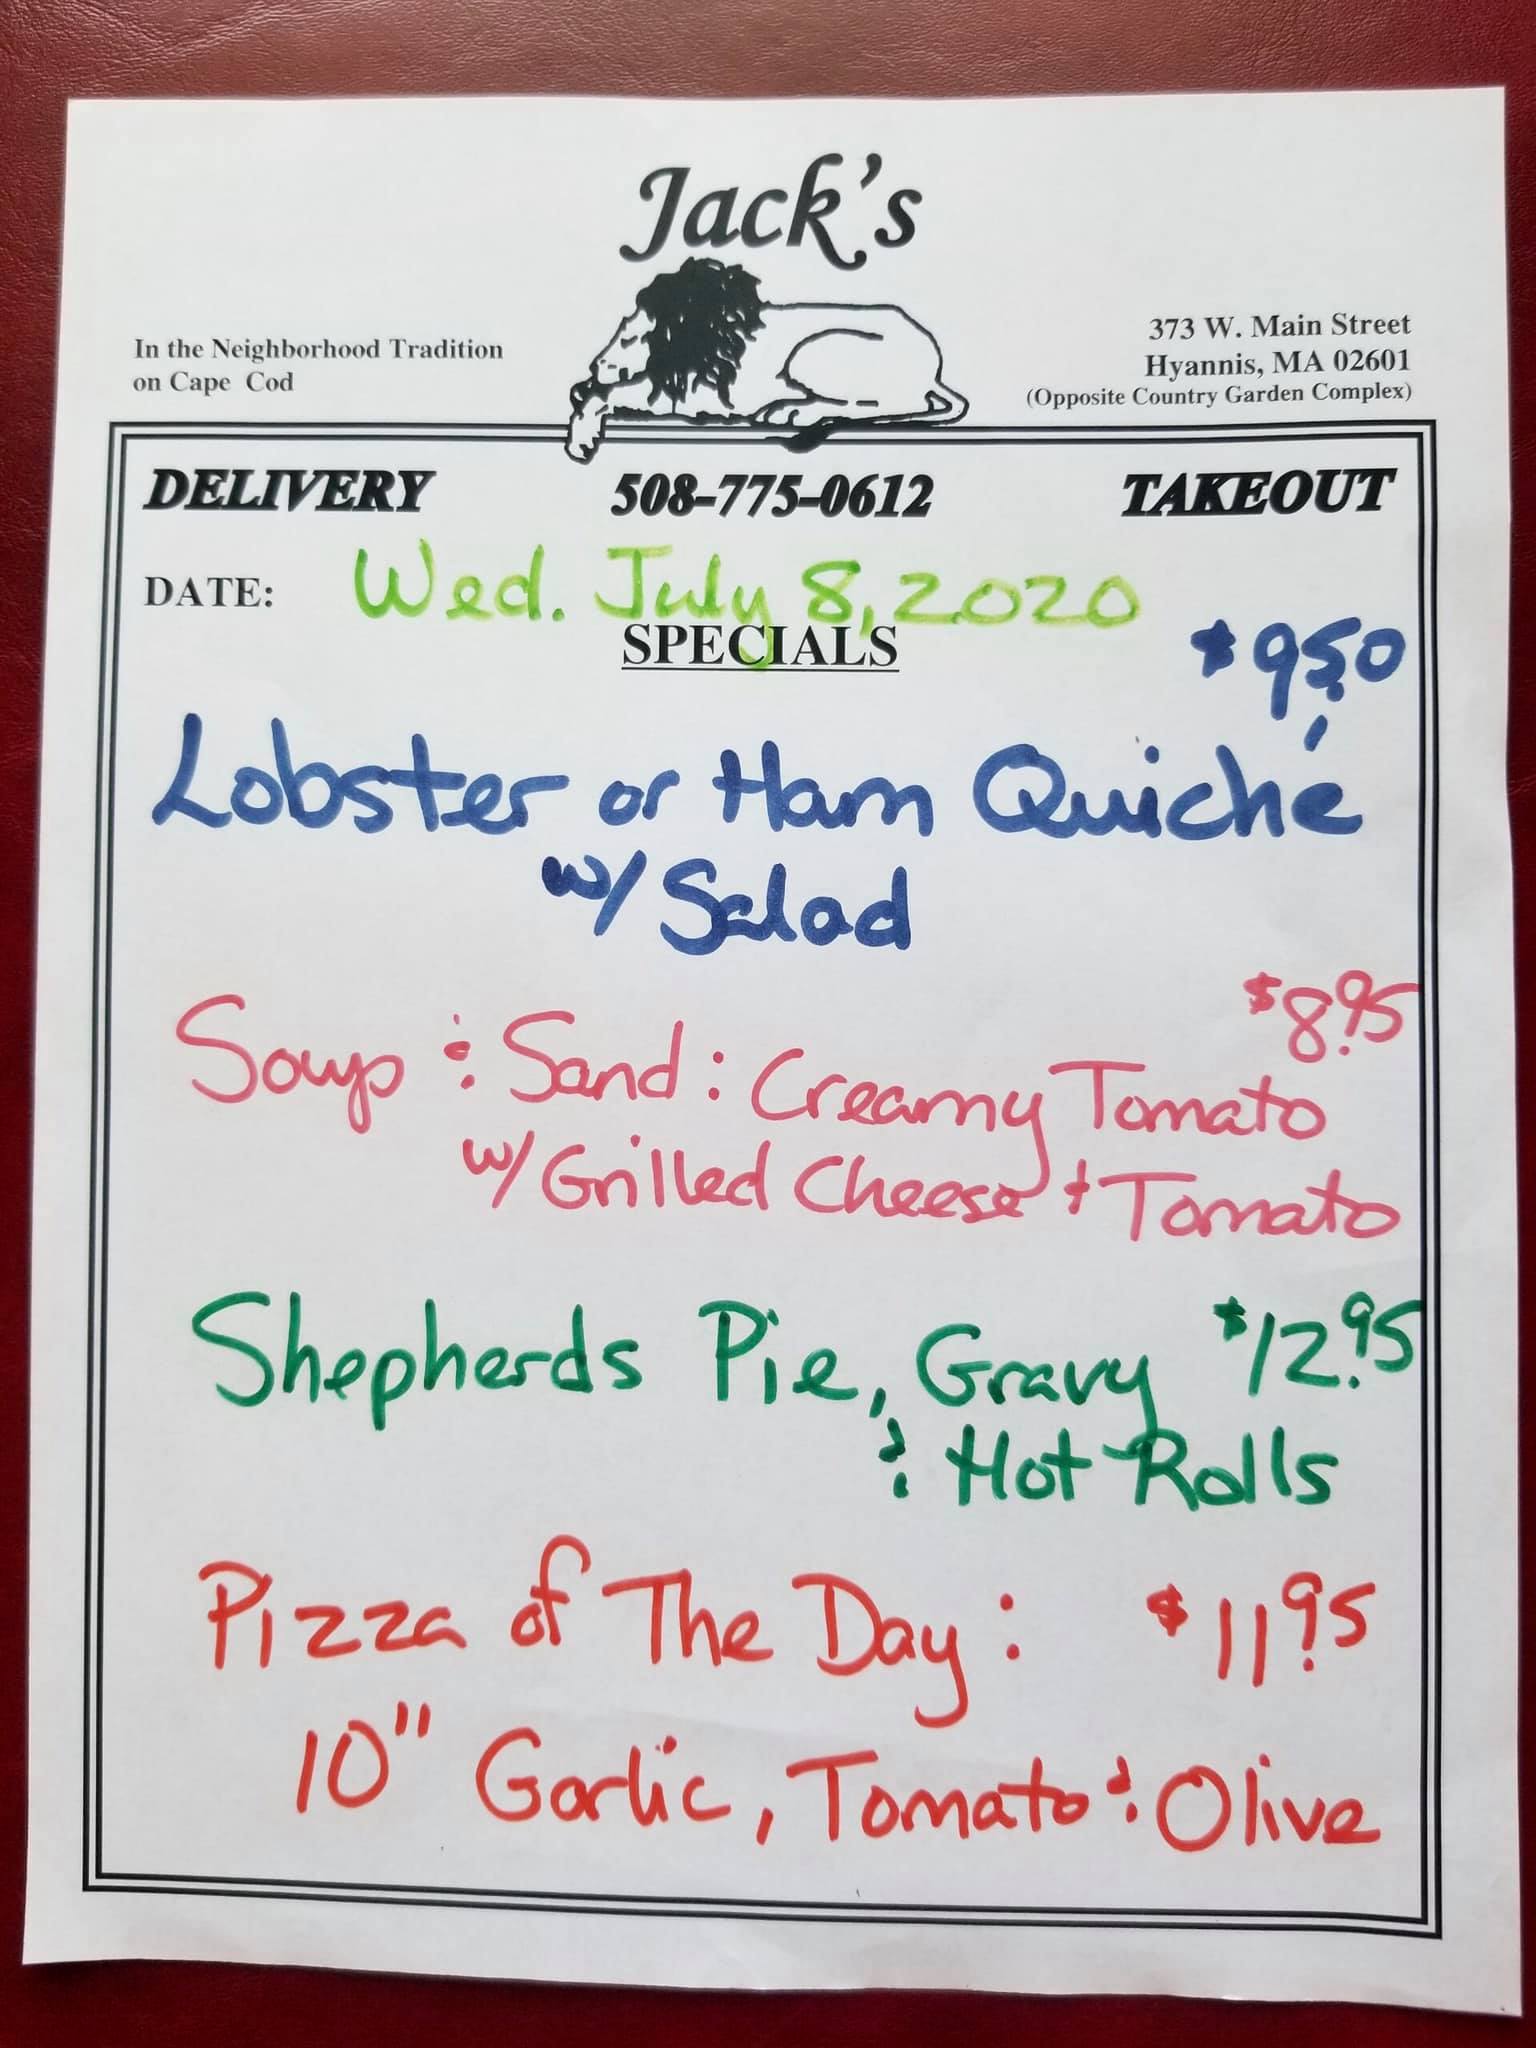 Jack's
In the Neighborhood Tradition
on Cape Cod
373 W. Main Street
Hyannis, MA 02601
(Opposite Country Garden Complex)
DELIVERY 508-775-0612 TAKEOUT
DATE: Wed. July 8, 2020
SPECIALS
$9.50
Lobster or Ham Quiché
w/ Salad
$8.95
Soup & Sand: Creamy Tomato
w/ Grilled Cheese + Tomato
Shepherds Pie, Gravy $12.95
& Hot Rolls
Pizza of The Day: $11.95
10" Garlic, Tomato & Olive